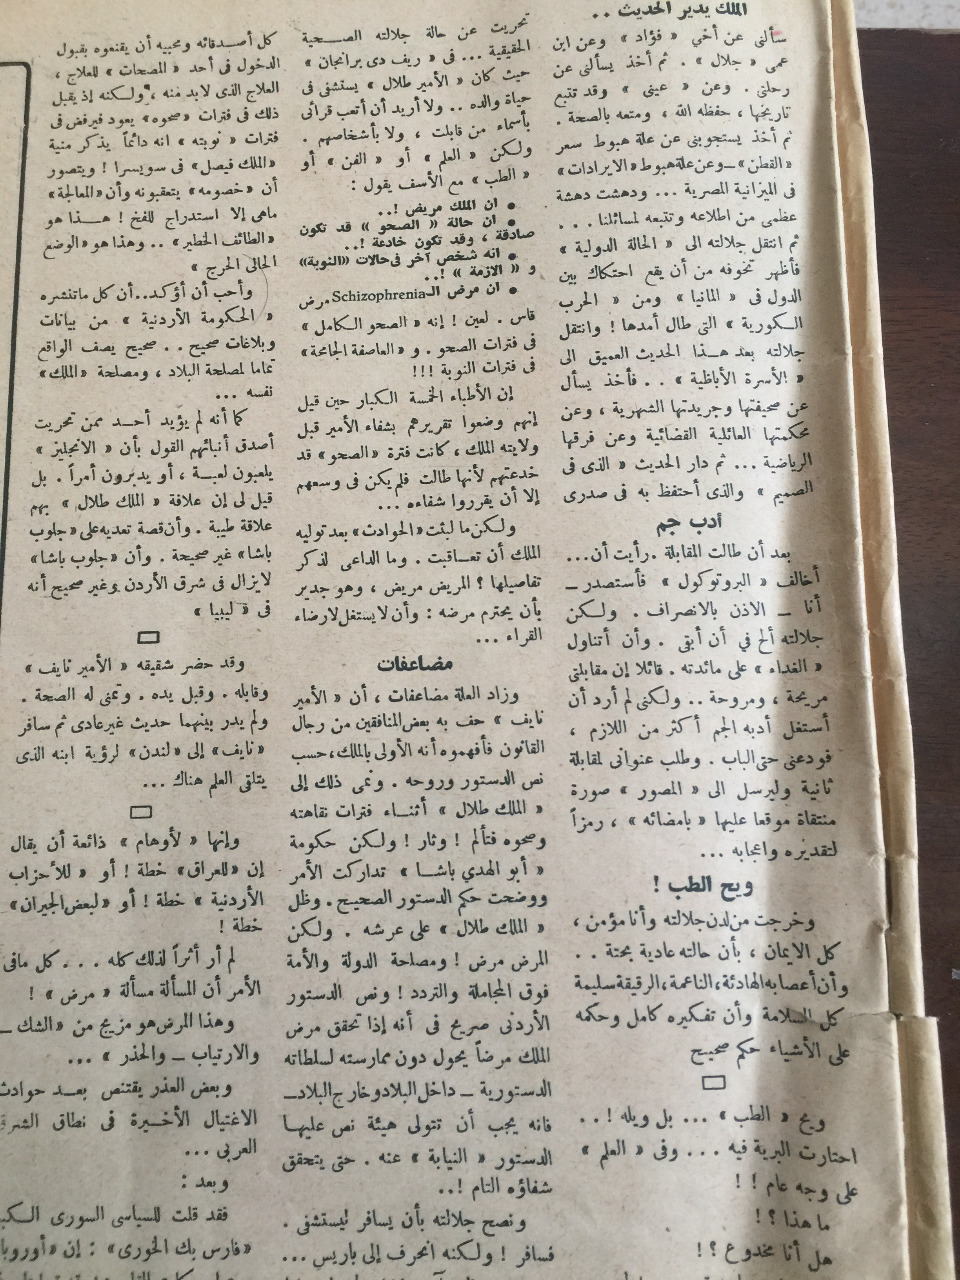 الملك يدير الحديث ..
سألنى عن أخي « فؤاد » وعن ابن
عمى « جلال » . ثم أخذ يسألنى عن
رحلتى . وعن « عينى » وقد تتبع
تاريخها ، حفظه الله ، ومتعه بالصحة .
ثم أخذ يستجوبنى عن علة هبوط سعر
« القطن » ــ وعن علة هبوط « الايرادات »
فى الميزانية المصرية ... ودهشت دهشة
عظمى من اطلاعه وتتبعه لمسائلنا ...
ثم انتقل جلالته الى « الحالة الدولية »
فأظهر تخوفه من أن يقع احتكاك بين
الدول فى « المانيا » ومن « الحرب
الكورية » التى طال أمدها ! وانتقل
جلالته بعد هذا الحديث العميق الى
« الأسرة الأباظية » .. فأخذ يسأل
عن صحيفتها وجريدتها الشهرية ، وعن
محكمتها العائلية القضائية وعن فرقها
الرياضية ... ثم دار الحديث « الذى فى
الصميم » والذى أحتفظ به فى صدرى
أدب جم
بعد أن طالت المقابلة . رأيت أن ...
أخالف « البروتوكول » فأستصدر ــ
أنا ــ الاذن بالانصراف . ولكن
جلالته ألح في أن أبقى . وأن أتناول
« الغداء » على مائدته . قائلا إن مقابلتى
مريحة ، ومروحة .. ولكنى لم أرد أن
أستغل أدبه الجم أكثر من اللازم ،
فودعنى حتى الباب . وطلب عنوانى لمقابلة
ثانية وليرسل الى « المصور » صورة
منتقاة موقعا عليها « بامضائه » ، رمزاً
لتقديره واعجابه ...
ويح الطب !
وخرجت من لدن جلالته وأنا مؤمن ،
كل الايمان ، بأن حالته عادية بحتة ..
وأن أعصابه الهادئة ، الناعمة ، الرقيقة سليمة
كل السلامة وأن تفكيره كامل وحكمه
على الأشياء حكم صحيح
ويح « الطب » ... بل ويله ! ..
احتارت البرية فيه ... وفى « العلم »
على وجه عام ! !
ما هذا ؟ !
هل أنا مخدوع ؟ !
تحريت عن حالة جلالته الصحية
الحقيقية ... فى « ريف دى برانجان »
حيث كان « الأمير طلال » يستشفى فى
حياة والده .. ولا أريد أن أتعب قرائى
بأسماء من قابلت ، ولا بأشخاصهم .
ولكن « العلم » أو « الفن » أو
« الطب » مع الأسف يقول :
● ان الملك مريض ! ..
● ان حالة « الصحو » قد تكون
صادقة ، وقد تكون خادعة ! ..
● انه شخص آخر فى حالات « النوبة »
و « الازمة » ! ..
● ان مرض الـ Schizophrenia مرض
قاس . لعين ! إنه « الصحو الكامل »
فى فترات الصحو . و « العاصفة الجامحة »
فى فترات النوبة ! ! !
إن الأطباء الخمسة الكبار حين قيل
إنهم وضعوا تقريرهم بشفاء الأمير قبل
ولايته الملك ، كانت فترة « الصحو » قد
خدعتهم لأنها طالت فلم يكن فى وسعهم
إلا أن يقرروا شفاءه ...
ولكن ما لبثت « الحوادث » بعد توليه
الملك أن تعاقبت . وما الداعى لذكر
تفاصيلها ؟ المريض مريض ، وهو جدير
بأن يحترم مرضه : وأن لا يستغل لارضاء
القراء ...
مضاعفات
وزاد العلة مضاعفات ، أن « الأمير
نايف » حف به بعض المنافقين من رجال
القانون فأفهموه أنه الأولى بالملك ، حسب
نص الدستور وروحه . ونمى ذلك إلى
« الملك طلال » أثناء فترات نقاهته
وصحوه فتألم ! وثار ! ولكن حكومة
« أبو الهدي باشا » تداركت الأمر
ووضحت حكم الدستور الصحيح . وظل
« الملك طلال » على عرشه . ولكن
المرض مرض ! ومصلحة الدولة والأمة
فوق المجاملة والتردد ! ونص الدستور
الأردنى صريح فى أنه إذا تحقق مرض
الملك مرضاً يحول دون ممارسته لسلطاته
الدستورية ــ داخل البلاد وخارج البلاد ــ
فانه يجب أن تتولى هيئة نص عليها
الدستور « النيابة » عنه . حتى يتحقق
شفاؤه التام ! ..
ونصح جلالته بأن يسافر ليستشفى .
فسافر ! ولكنه انحرف إلى باريس ...
كل أصدقائه ومحبيه أن يقنعوه بقبول
الدخول فى أحد « المصحات » للعلاج ،
العلاج الذى لابد منه ، ولكنه إذ يقبل
ذلك فى فترات « صحوه » يعود فيرفض فى
فترات « نوبته » انه دائماً يذكر منية
« الملك فيصل » فى سويسرا ! ويتصور
أن « خصومه » يتعقبونه وأن « المعالجة »
ماهى إلا استدراج للفخ ! هذا هو
« الطائف الخطير » .. وهذا هو « الوضع
الحالى الحرج »
وأحب أن أؤكد .. أن كل ماتنشره
« الحكومة الأردنية » من بيانات
وبلاغات صحيح .. صحيح يصف الواقع
تماما لمصلحة البلاد ، ومصلحة « الملك »
نفسه ...
كما أنه لم يؤيد أحد ممن تحريت
أصدق أنبائهم القول بأن « الانجليز »
يلعبون لعبة ، أو يدبرون أمراً . بل
قيل لى إن علاقة « الملك طلال » بهم
علاقة طيبة . وأن قصة تعديه على « جلوب
باشا » غير صحيحة . وأن « جلوب باشا »
لايزال فى شرق الأردن وغير صحيح أنه
فى « ليبيا »
وقد حضر شقيقه « الأمير نايف »
وقابله . وقبل يده . وتمنى له الصحة .
ولم يدر بينهما حديث غير عادى ثم سافر
« نايف » إلى « لندن » لرؤية ابنه الذى
يتلقى العلم هناك ...
وإنها « لأوهام » ذائعة أن يقال
إن « للعراق » خطة ! أو « للأحزاب
الأردنية » خطة ! أو « لبعض الجيران »
خطة !
لم أر أثراً لذلك كله ... كل مافى
الأمر أن المسألة مسألة « مرض » !
وهذا المرض هو مزيج من « الشك ــ
والارتياب ــ والحذر » ...
وبعض العذر يقتنص بعد حوادث
الاغتيال الأخيرة فى نطاق الشرق
العربى ...
وبعد :
فقد قلت للسياسى السورى
« فارس بك الخورى » : إن « أوروبا